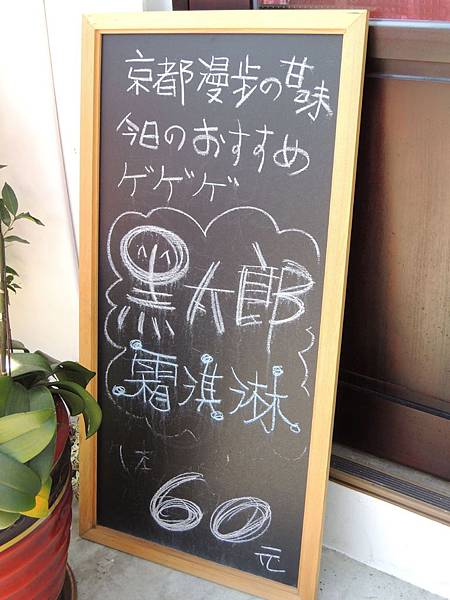 京都漫歩の甘味
今日のおすすめ
ゲゲゲ
黑太郎
霜淇淋
60元